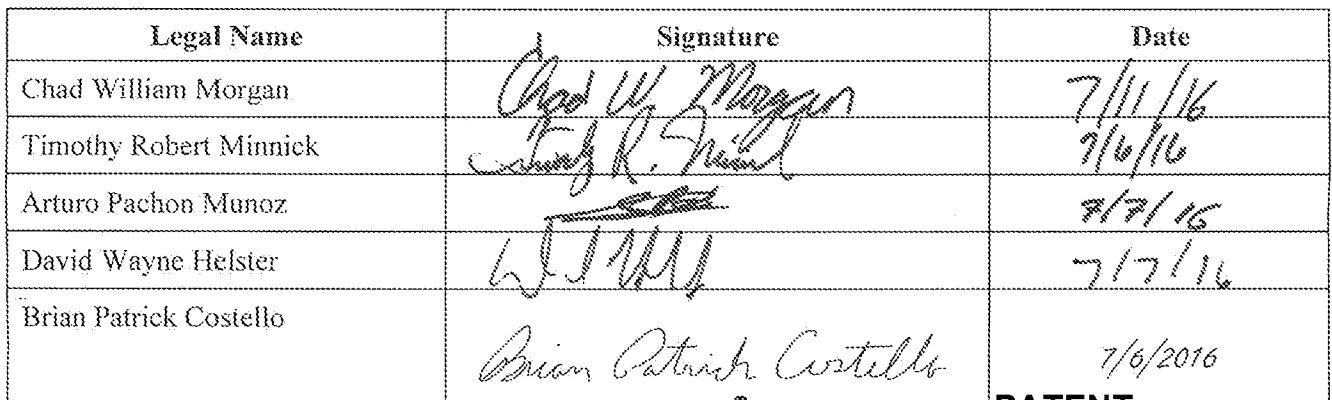 Legal Name Signature Date
Chad William Morgan Chad W. Morgan 7/11/16
Timothy Robert Minnick R. 7/6/16
Arturo Pachon Munoz 7/7/16
David Wayne Helster 7/7/16
Brian Patrick Costello
Brian Patrick Costello 7/6/2016
PATENT